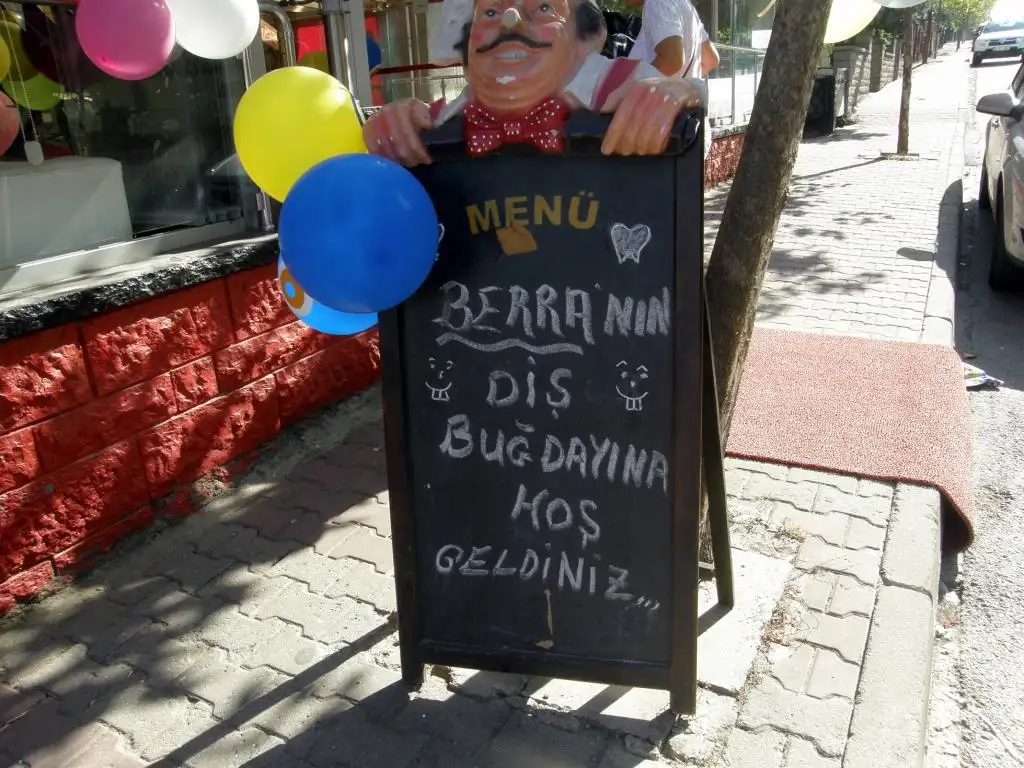 MENÜ
BERRA'NIN
DİŞ
BUĞDAYINA
HOŞ
GELDİNİZ...